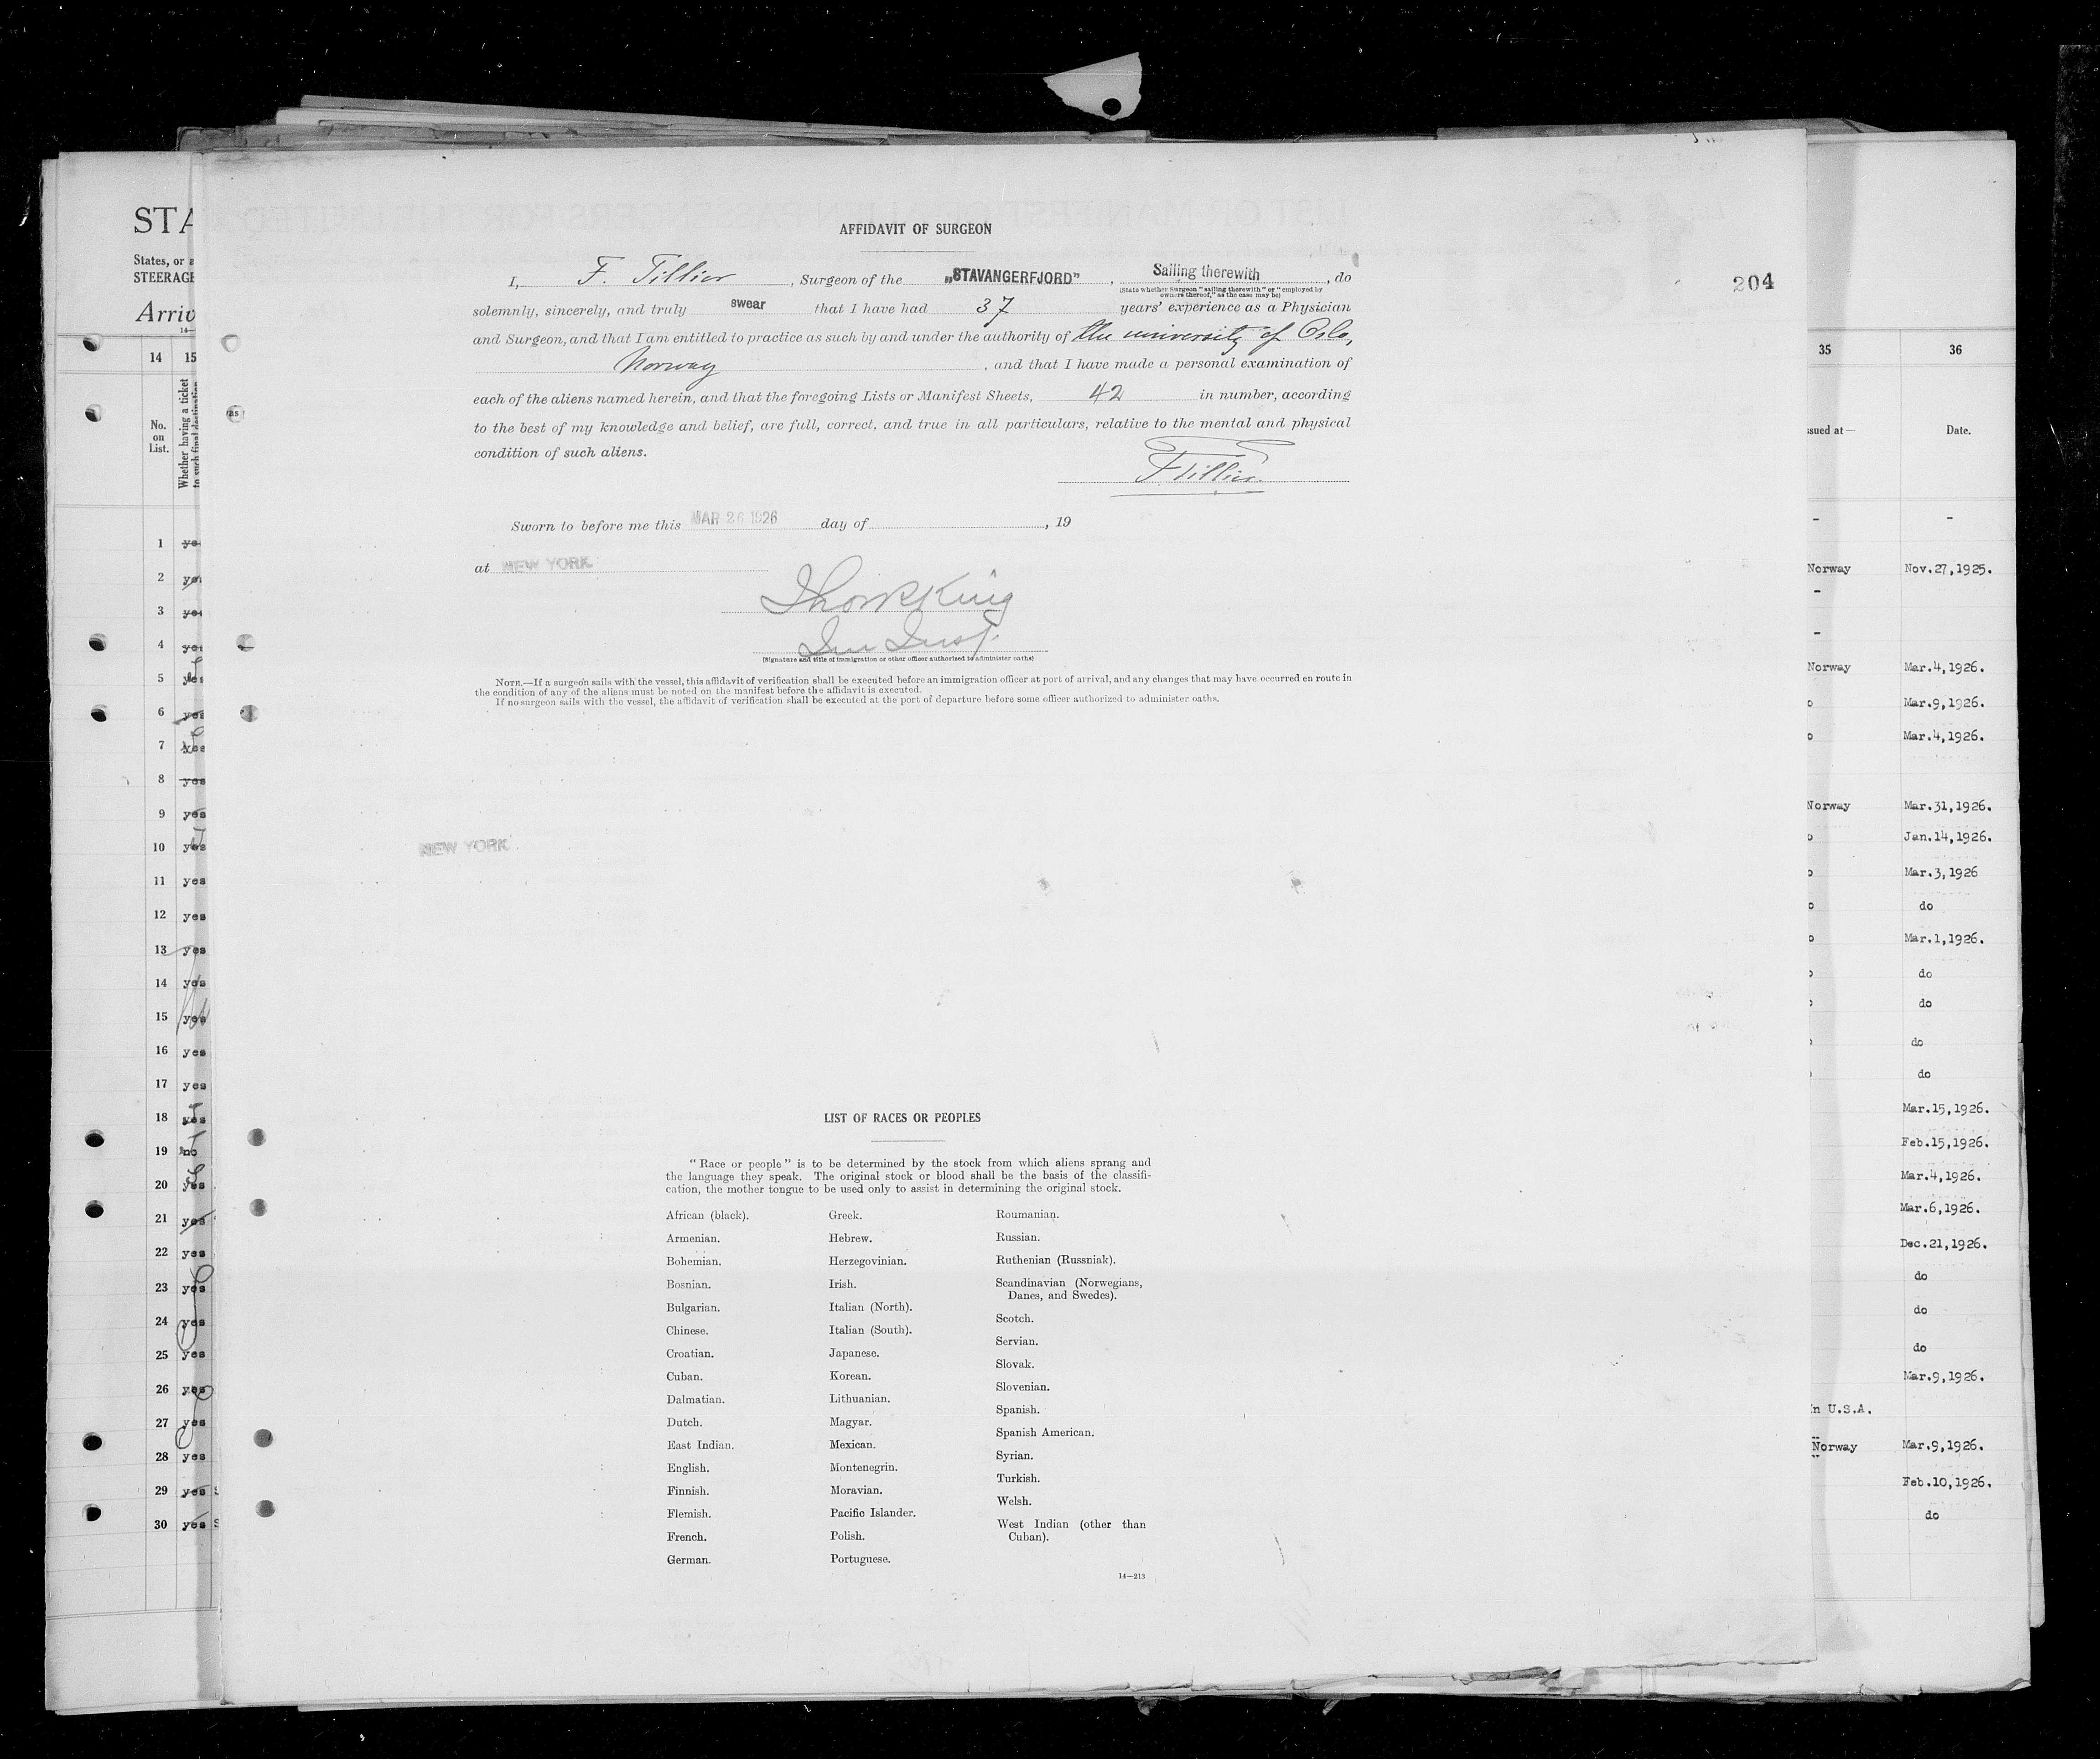 AFFIDAVIT OF SURGEON
I, F. Tillier, Surgeon of the „STAVANGERFJORD”, Sailing therewith, do
(State whether Surgeon "sailing therewith" or "employed by
owners thereof," as the case may be)
204
solemnly, sincerely, and truly swear that I have had 37 years' experience as a Physician
and Surgeon, and that I am entitled to practice as such by and under the authority of the university of Oslo,
Norway, and that I have made a personal examination of
each of the aliens named herein, and that the foregoing Lists or Manifest Sheets, 42 in number, according
to the best of my knowledge and belief, are full, correct, and true in all particulars, relative to the mental and physical
condition of such aliens.
F Tillier
Sworn to before me this MAR 26 1926 day of , 19
at NEW YORK
King
Im Insp.
(Signature and title of immigration or other officer authorized to administer oaths)
NOTE.—If a surgeon sails with the vessel, this affidavit of verification shall be executed before an immigration officer at port of arrival, and any changes that may have occurred en route in
the condition of any of the aliens must be noted on the manifest before the affidavit is executed.
If no surgeon sails with the vessel, the affidavit of verification shall be executed at the port of departure before some officer authorized to administer oaths.
NEW YORK
LIST OF RACES OR PEOPLES
"Race or people" is to be determined by the stock from which aliens sprang and
the language they speak. The original stock or blood shall be the basis of the classifi-
cation, the mother tongue to be used only to assist in determining the original stock.
African (black).
Armenian.
Bohemian.
Bosnian.
Bulgarian.
Chinese.
Croatian.
Cuban.
Dalmatian.
Dutch.
East Indian.
English.
Finnish.
Flemish.
French.
German.
Greek.
Hebrew.
Herzegovinian.
Irish.
Italian (North).
Italian (South).
Japanese.
Korean.
Lithuanian.
Magyar.
Mexican.
Montenegrin.
Moravian.
Pacific Islander.
Polish.
Portuguese.
Roumanian.
Russian.
Ruthenian (Russniak).
Scandinavian (Norwegians,
Danes, and Swedes).
Scotch.
Servian.
Slovak.
Slovenian.
Spanish.
Spanish American.
Syrian.
Turkish.
Welsh.
West Indian (other than
Cuban).
14—213
STA
States, or a
STEERAGE
Arriv
14—
14 15
No.
on
List.
Whether having a ticket
to such final destination
1 yes
2 yes
3 yes
4 yes
5 yes
6 yes
7 yes
8 yes
9 yes
10 yes
11 yes
12 yes
13 yes
14 yes
15 yes
16 yes
17 yes
18 yes
19 no
20 yes
21 yes
22 yes
23 yes
24 yes
25 yes
26 yes
27 yes
28 yes
29 yes
30 yes
35 36
ssued at— Date.
- -
Norway Nov.27,1925.
-
-
Norway Mar.4,1926.
o Mar.9,1926.
o Mar.4,1926.
Norway Mar.31,1926.
o Jan.14,1926.
o Mar.3,1926
o do
o Mar.1,1926.
do
do
do
do
Mar.15,1926.
Feb.15,1926.
Mar.4,1926.
Mar.6,1926.
Dec.21,1926.
do
do
do
Mar.9,1926.
n U.S.A.
Norway Mar.9,1926.
Feb.10,1926.
do